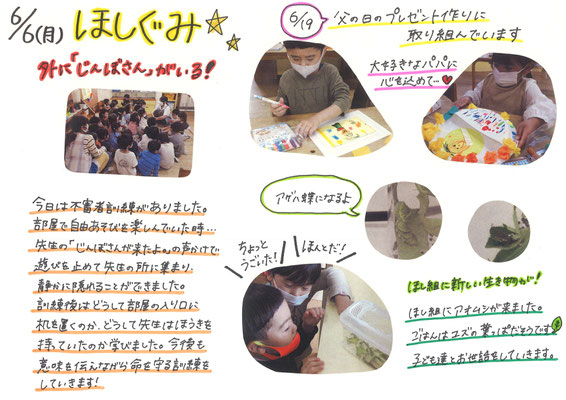 6/6(月) ほしぐみ
外に「じんぼさん」がいる!
今日は不審者訓練がありました。
部屋で自由あそびを楽しんでいた時…
先生の「じんぼさんが来たよ〜」の声かけで
遊びを止めて先生の所に集まり、
静かに隠れることができました。
訓練後はどうして部屋の入り口に
机を置くのか、どうして先生はほうきを
持っていたのか学びました。今後も
意味を伝えながら命を守る訓練を
していきます!
6/19 父の日のプレゼント作りに
取り組んでいます
大好きなパパに
心を込めて…♥
アゲハ蝶になるよ
ちょっと
うごいた!
ほんとだ!
ほし組に新しい生き物が!
ほし組にアオムシが来ました。
ごはんはユズの葉っぱだそうです
子ども達とお世話をしていきます。